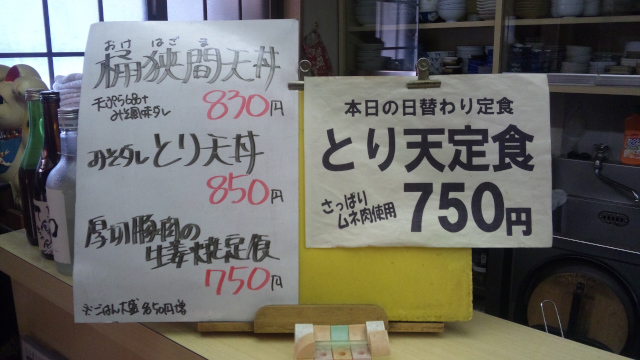 おけはざま
桶狭間天丼
天ぷら6品+
みそ風味タレ
830円
みそダレとり天丼
850円
厚切豚肉の
生姜焼定食
750円
※ごはん大盛各50円増
本日の日替わり定食
とり天定食
さっぱり
ムネ肉使用
750円